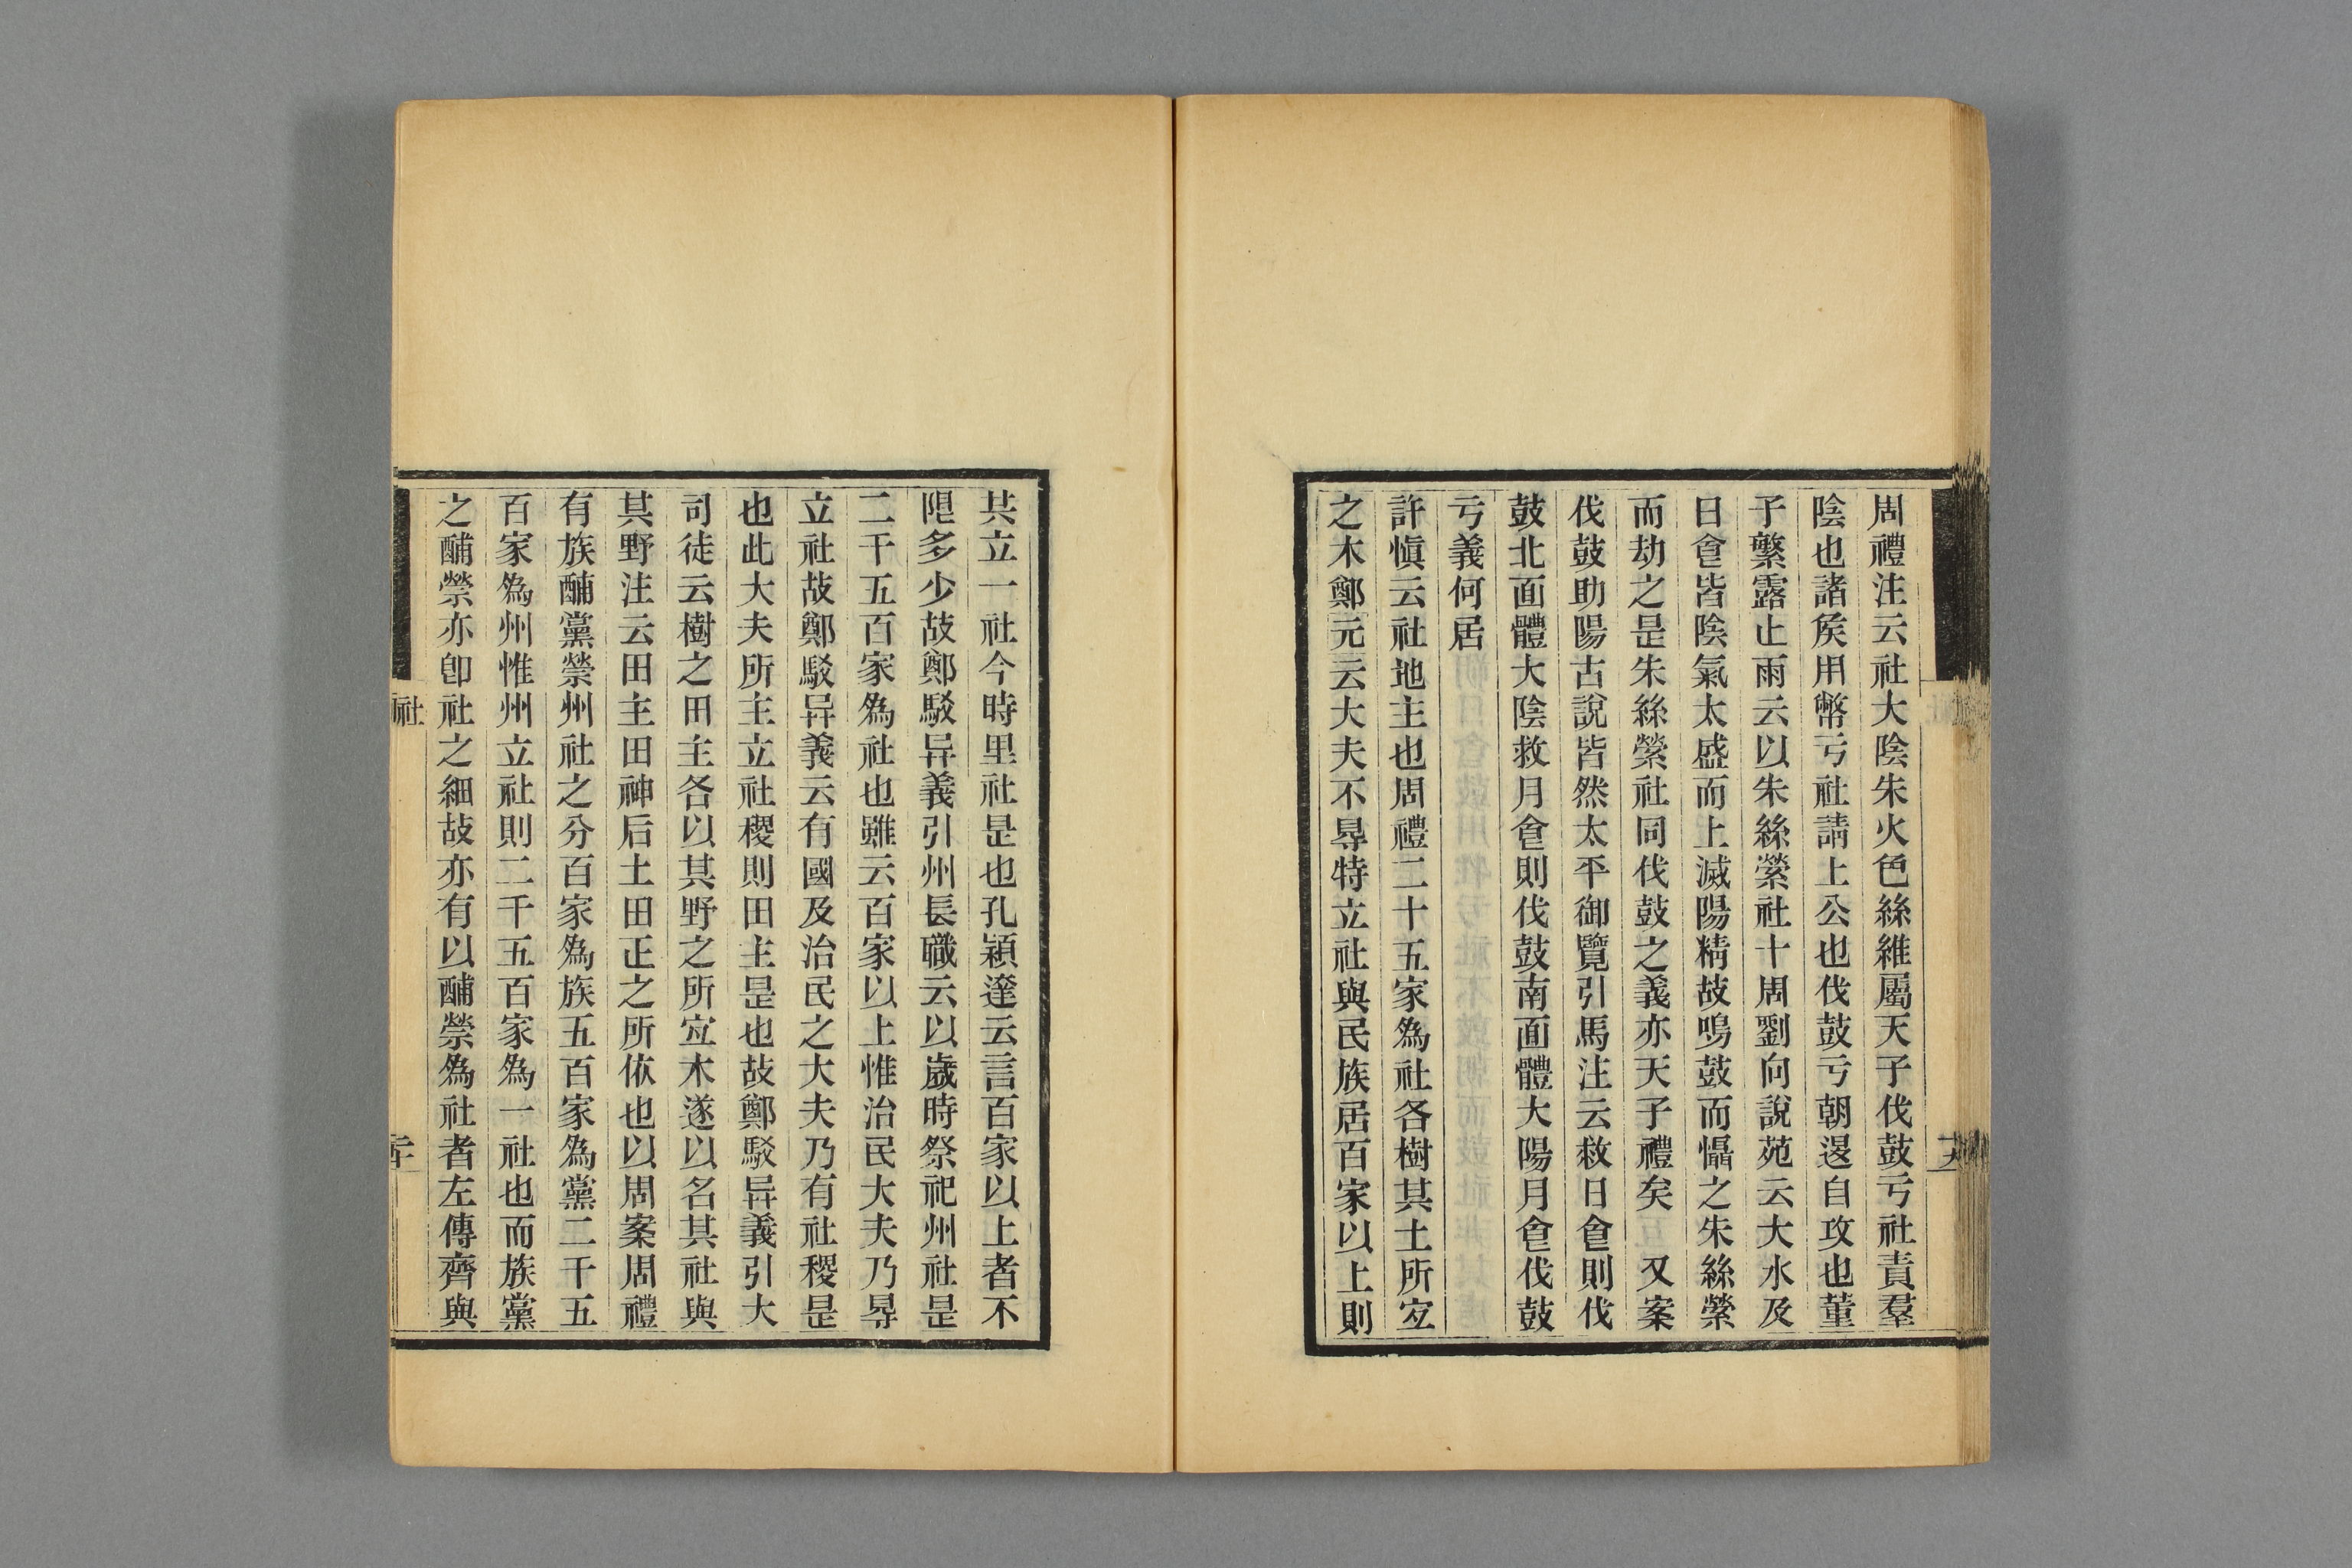 周禮注云社大陰朱火色絲維屬天子伐鼓亏社責羣
陰也諸矦用幣亏社請上公也伐鼓亏朝退自攻也董
子繁露止雨云以朱絲縈社十周劉向說苑云大水及
日食皆陰氣太盛而上滅陽精故鳴鼓而懾之朱絲縈
而劫之是朱絲縈社同伐鼓之義亦天子禮矣 又案
伐鼓助陽古說皆然太平御覽引馬注云救日食則伐
鼓北面體大陰救月食則伐鼓南面體大陽月食伐鼓
亏義何居
許愼云社地主也周禮二十五家爲社各樹其土所宐
之木鄭元云大夫不㝵特立社與民族居百家以上則
共立一社今時里社是也孔穎達云言百家以上者不
限多少故鄭駁异義引州長職云以歲時祭祀州社是
二千五百家爲社也雖云百家以上惟治民大夫乃㝵
立社故鄭駁异義云有國及治民之大夫乃有社稷是
也此大夫所主立社稷則田主是也故鄭駁异義引大
司徒云樹之田主各以其野之所宐木遂以名其社與
其野注云田主田神后土田正之所依也以周案周禮
有族酺黨禜州社之分百家爲族五百家爲黨二千五
百家爲州惟州立社則二千五百家爲一社也而族黨
之酺禜亦卽社之細故亦有以酺禜爲社者左傳齊與
社